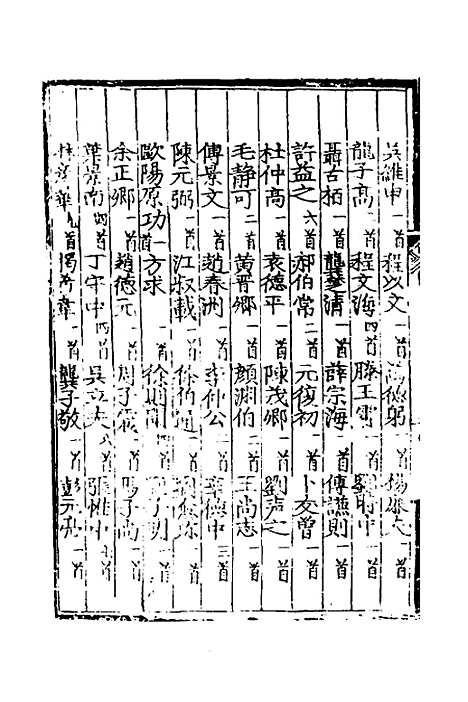 吳維申一首 程以文一首 馮德躬一首 楊廉夫一首
龍子高一首 程文海四首 滕玉霄一首 劉時中一首
聶古栢一首 龔璛清一首 薛宗海一首 傅謙則一首
許益之六首 郝伯常二首 元復初一首 卜友曾一首
杜仲高一首 袁德平一首 陳茂卿一首 劉声之一首
毛靜可二首 黃晋卿一首 顏淵伯一首 王尚志一首
傅景文一首 趙春洲一首 李仲公一首 辛德中三首
陳元弼一首 江叔載一首 徐伯通一首
歐陽原功一首 方求一首 一首
余正卿一首 趙德元一首 周子 一首 馬子尚一首
葉景南四首 丁守中四首 吳立夫 首 張惟中一首
九首 一首 龔子敬一首 彭元亮一首